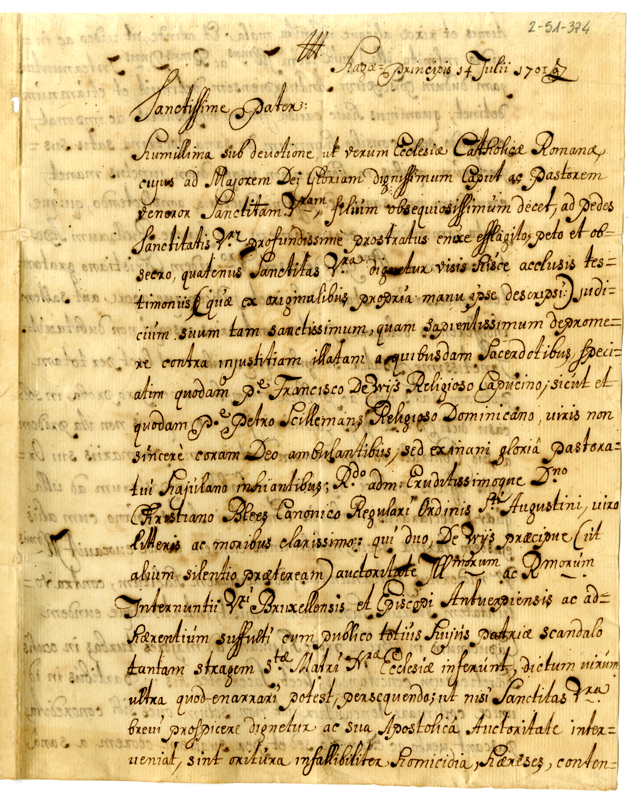 2-51-374
Hagæ-Principis 14 Julii 1701
Sanctissime Pater:
Humillima sub devotione, ut verum Ecclesiæ Catholicæ Romanæ,
cujus ad Majorem Dei Gloriam dignissimum Caput ac Pastorem
venoror Sanctitam Vram, filium obsequiosissimum decet, ad pedes
Sanctitatis Vræ profundissime prostratus enixe efflagito, peto et ob=
secro, quatenus Sanctitas Vra dignetur visis hisce acclusis tes=
timoniis (quæ ex originalibus propria manu ipse descripsi:) judi=
cium suum tam sanctissimum, quam sapientissimum deprome=
re contra injustitiam illatam a quibusdam Sacerdotibus, speci=
atim quodam Pe Francisco De Wijs Religioso Capucino; sicut et
quodam Pe Petro Scillemans Religioso Dominicano, viris non
sincere coram Deo ambulantibus, sed ex inani gloriâ pastora=
tui Hajulano inhiantibus; Rdo adm: Eruditissimoque Dno
Christiano Blees Canonico Regulari Ordinis Sti Augustini, viro
litteris ac moribus clarissimo: qui duo, De Wijs præcipue (ut
alium silentio præteream) auctoritate Illmorum ac Rmorum
Internuntii Vri Bruxellensis et Episcopi Antverpiensis ac ad=
hærentium suffulti cum publico totius hujus patriæ scandalo
tantam stragem stæ Matri Nræ Ecclesiæ inferunt, dictum virum
ultra quod enarrari potest, persequendo; ut nisi Sanctitas Vra
brevi prospicere dignetur ac sua Apostolicâ Auctoritate inter=
veniat, sint oritura infallibiliter homicidia, hæreses, conten=